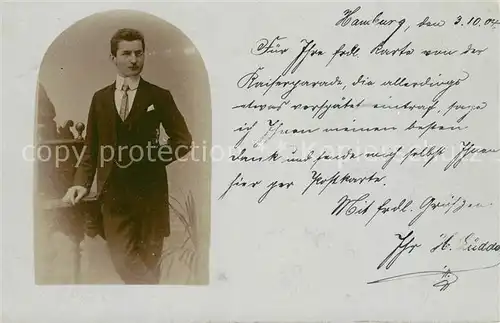 Hamburg, den 3.10.04
Für Ihre frdl. Karte von der
Kaiserparade, die allerdings
etwas verspätet eintraf, sage
ich Ihnen meinen besten
Dank und sende mich selbst Ihnen
hier per Postkarte.
Mit frdl. Grüßen
Ihr H. Lüdde
copyright